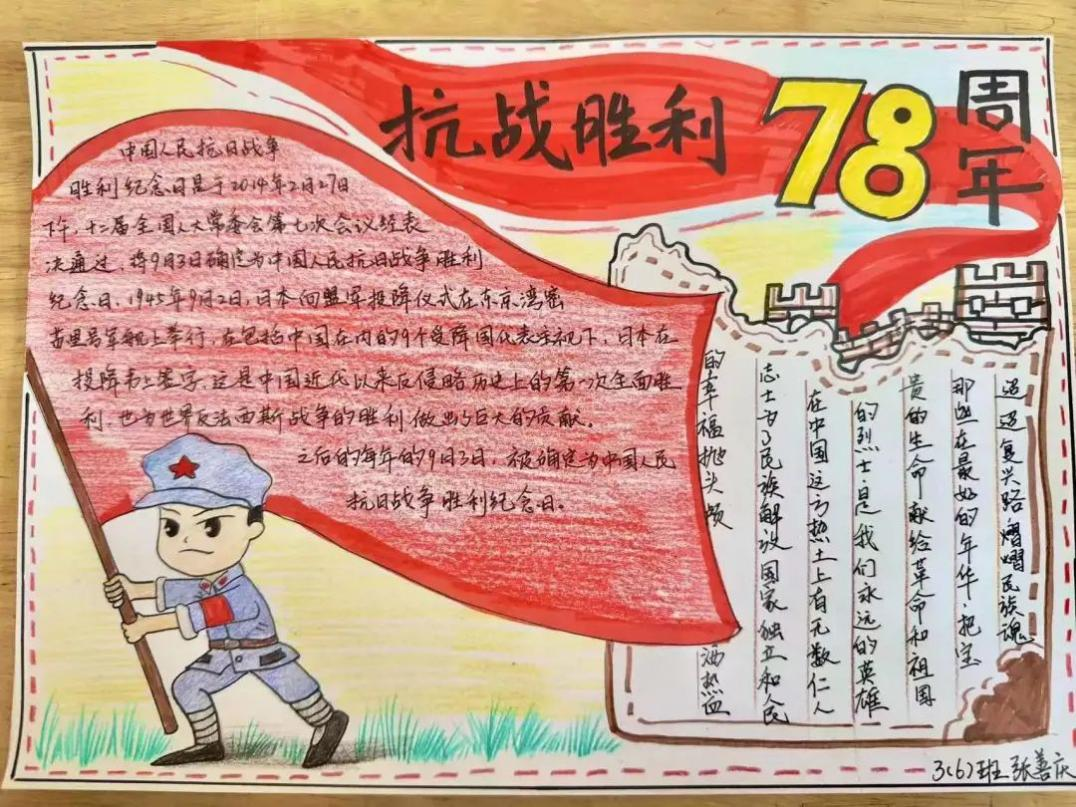 抗战胜利78周年
中国人民抗日战争
胜利纪念日是于2014年2月27日
下午,十二届全国人大常委会第七次会议经表
决通过,将9月3日确定为中国人民抗日战争胜利
纪念日,1945年9月2日,日本向盟军投降仪式在东京湾密
苏里号军舰上举行,在包括中国在内的9个受降国代表注视下,日本在
投降书上签字,这是中国近代以来反侵略历史上的第一次全面胜
利,也为世界反法西斯战争的胜利做出了巨大的贡献。
之后的每年的9月3日,被确定为中国人民
抗日战争胜利纪念日。
迢迢复兴路熠熠民族魂
那些在最好的年华,把宝
贵的生命献给革命和祖国
的烈士,是我们永远的英雄
在中国这方热土上有无数仁人
志士为了民族解放国家独立和人民
的幸福抛头颅洒热血
3(6)班 张善庆